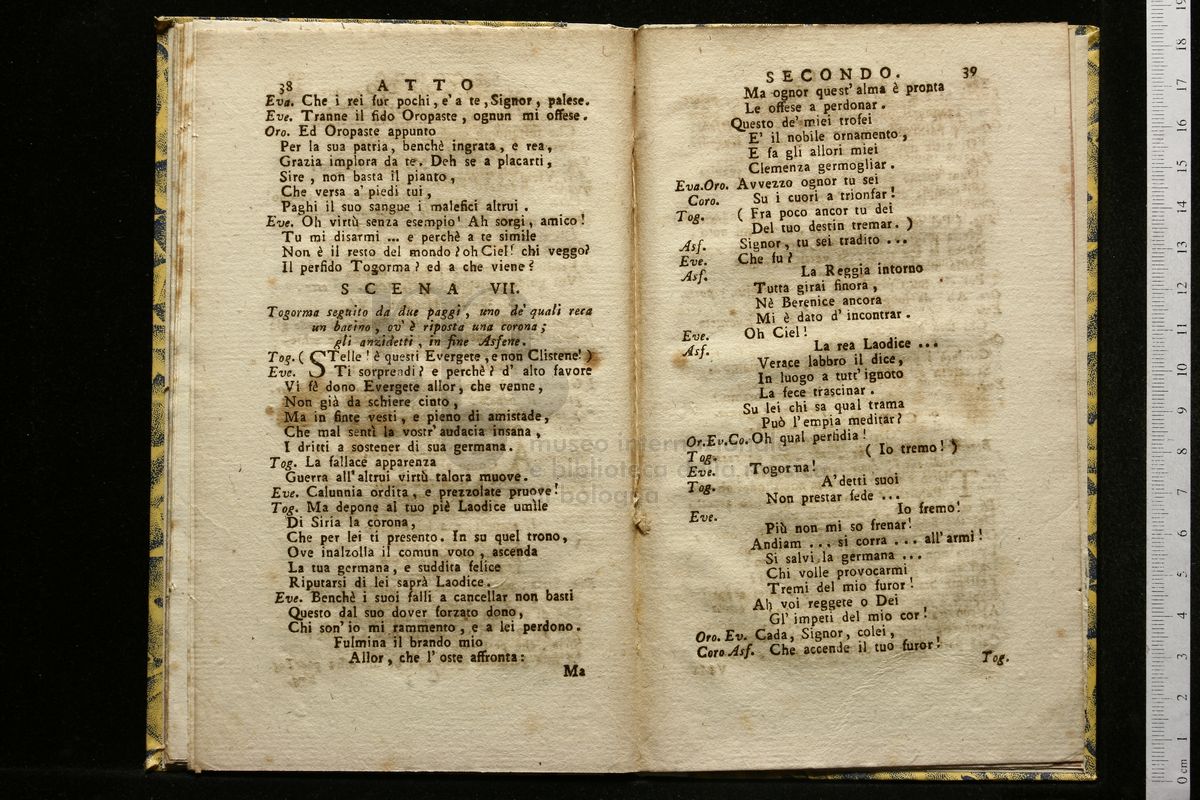 38 ATTO
Eva. Che i rei fur pochi, e' a te, Signor, palese.
Eve. Tranne il fido Oropaste, ognun mi offese.
Oro. Ed Oropaste appunto
Per la sua patria, benchè ingrata, e rea,
Grazia implora da te. Deh se a placarti,
Sire, non basta il pianto,
Che versa a' piedi tui,
Paghi il suo sangue i malefici altrui.
Eve. Oh virtù senza esempio! Ah sorgi, amico!
Tu mi disarmi ... e perchè a te simile
Non è il resto del mondo? oh Ciel! chi veggo?
Il perfido Togorma? ed a che viene?
SCENA VII.
Togorma seguito da due paggi, uno de' quali reca
un bacino, ov' è riposta una corona;
gli anzidetti, in fine Asfene.
Tog. ( STelle! è questi Evergete, e non Clistene! )
Eve. Ti sorprendi? e perchè? d' alto favore
Vi fè dono Evergete allor, che venne,
Non già da schiere cinto,
Ma in finte vesti, e pieno di amistade,
Che mal sentì la vostr' audacia insana,
I dritti a sostener di sua germana.
Tog. La fallace apparenza
Guerra all' altrui virtù talora muove.
Eve. Calunnia ordita, e prezzolate pruove!
Tog. Ma depone al tuo piè Laodice umìle
Di Siria la corona,
Che per lei ti presento. In su quel trono,
Ove inalzolla il comun voto, ascenda
La tua germana, e suddita felice
Riputarsi di lei saprà Laodice.
Eve. Benchè i suoi falli a cancellar non basti
Questo dal suo dover forzato dono,
Chi son' io mi rammento, e a lei perdono.
Fulmina il brando mio
Allor, che l' oste affronta:
Ma
SECONDO. 39
Ma ognor quest' alma è pronta
Le offese a perdonar.
Questo de' miei trofei
E' il nobile ornamento,
E fa gli allori miei
Clemenza germogliar.
Eva. Oro. Avvezzo ognor tu sei
Coro. Su i cuori a trionfar!
Tog. ( Fra poco ancor tu dei
Del tuo destin tremar. )
Asf. Signor, tu sei tradito ...
Eve. Che fu?
Asf. La Reggia intorno
Tutta girai finora,
Nè Berenice ancora
Mi è dato d' incontrar.
Eve. Oh Ciel!
Asf. La rea Laodice ...
Verace labbro il dice,
In luogo a tutt' ignoto
La fece trascinar.
Su lei chi sa qual trama
Può l' empia meditar?
Or. Ev. Co. Oh qual perfidia!
Tog. ( Io tremo! )
Eve. Togorma!
Tog. A' detti suoi
Non prestar fede ...
Eve. Io fremo!
Più non mi so frenar!
Andiam ... si corra ... all' armi!
Si salvi la germana ...
Chi volle provocarmi
Tremi del mio furor!
Ah voi reggete o Dei
Gl' impeti del mio cor!
Oro. Ev. Cada, Signor, colei,
Coro Asf. Che accende il tuo furor!
Tog.
museo internazionale
e biblioteca della musica
bologna
0 cm 1 2 3 4 5 6 7 8 9 10 11 12 13 14 15 16 17 18 19